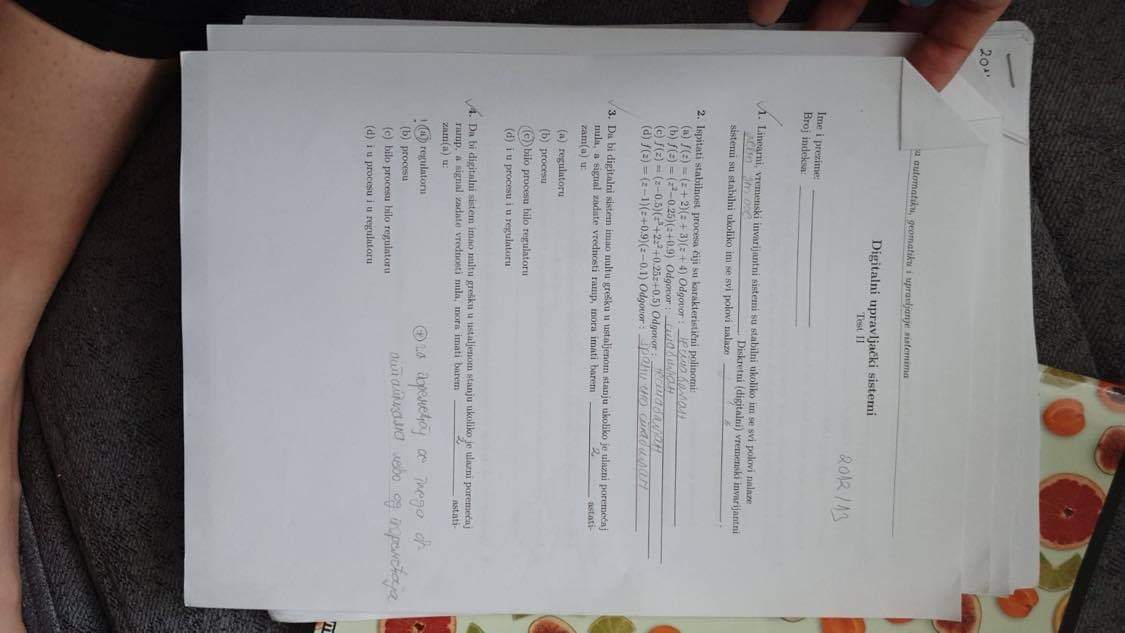 201
u automatiku, geomatiku i upravljanje sistemima
Digitalni upravljački sistemi
Test II
2012/13
Ime i prezime:
Broj indeksa:
1. Linearni, vremenski invarijantni sistemi su stabilni ukoliko im se svi polovi nalaze
лево од осе . Diskretni (digitalni) vremenski invarijantni
sistemi su stabilni ukoliko im se svi polovi nalaze ;
2. Ispitati stabilnost procesa čiji su karakteristični polinomi:
(a) f(z) = (z + 2)(z + 3)(z + 4) Odgovor : нестабилан
(b) f(z) = (z²−0.25)(z+0.9) Odgovor : стабилан
(c) f(z) = (z−0.5)(z³+2z²+0.25z+0.5) Odgovor : нестабилан
(d) f(z) = (z−1)(z+0.9)(z−0.1) Odgovor : гранично стабилан
3. Da bi digitalni sistem imao nultu grešku u ustaljenom stanju ukoliko je ulazni poremećaj
nula, a signal zadate vrednosti ramp, mora imati barem 2 astati-
zam(a) u:
(a) regulatoru
(b) procesu
(c) bilo procesu bilo regulatoru
(d) i u procesu i u regulatoru
4. Da bi digitalni sistem imao nultu grešku u ustaljenom stanju ukoliko je ulazni poremećaj
ramp, a signal zadate vrednosti nula, mora imati barem 2 astati-
zam(a) u:
! (a) regulatoru
(b) procesu
(c) bilo procesu bilo regulatoru
(d) i u procesu i u regulatoru
за поремећај се гледа бр.
астатизама лево од поремећаја